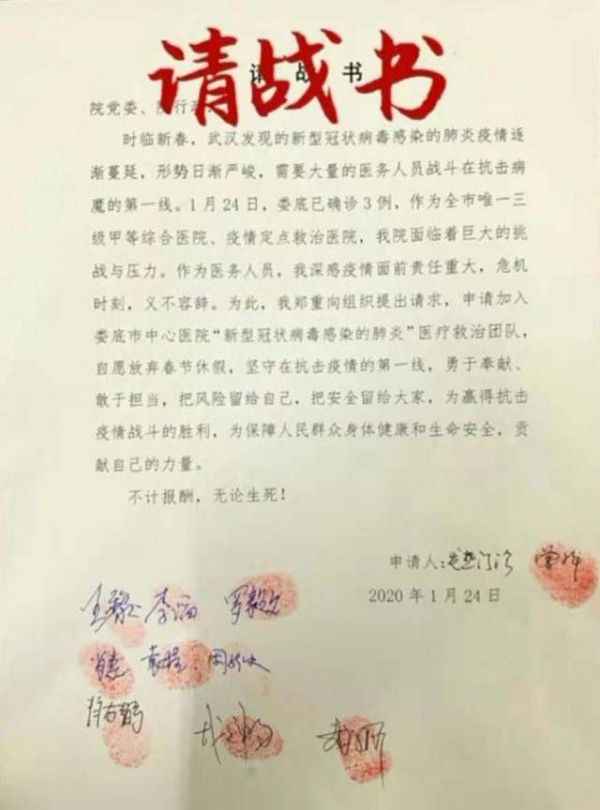 请战书
请 战 书
院党委、
时临新春，武汉发现的新型冠状病毒感染的肺炎疫情逐
渐蔓延，形势日渐严峻，需要大量的医务人员战斗在抗击病
魔的第一线。1月24日，娄底已确诊3例，作为全市唯一三
级甲等综合医院、疫情定点救治医院，我院面临着巨大的挑
战与压力。作为医务人员，我深感疫情面前责任重大，危机
时刻，义不容辞。为此，我郑重向组织提出请求，申请加入
娄底市中心医院“新型冠状病毒感染的肺炎”医疗救治团队，
自愿放弃春节休假，坚守在抗击疫情的第一线，勇于奉献、
敢于担当，把风险留给自己，把安全留给大家，为赢得抗击
疫情战斗的胜利，为保障人民群众身体健康和生命安全，贡
献自己的力量。
不计报酬，无论生死！
申请人：
2020年1月24日